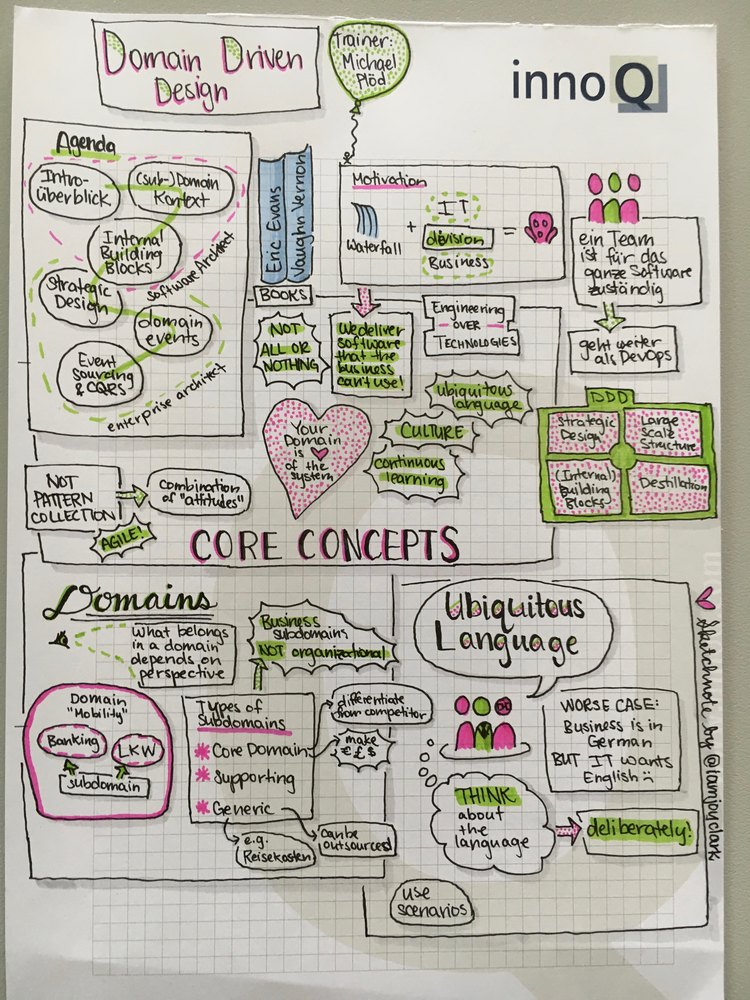 Domain Driven
Design
Trainer:
Michael
Plöd
innoQ
Agenda
Intro-
überblick
(sub-)Domain
Kontext
Internal
Building
Blocks
Software Architect
Strategic
Design
domain
events
Event
Sourcing
& CQRS
enterprise architect
Eric Evans
Vaughn Vernon
BOOKS
Motivation
Waterfall
+
IT
division
Business
=
ein Team
ist für das
ganze Software
zuständig
geht weiter
als DevOps
NOT
ALL OR
NOTHING
We deliver
software
that the
business
can't use!
Engineering
OVER
TECHNOLOGIES
ubiquitous
language
Your
Domain
is ♥
of the
system
CULTURE
continuous
learning
DDD
Strategic
Design
Large
Scale
Structure
(Internal)
Building
Blocks
Destillation
NOT
PATTERN
COLLECTION
combination
of "attitudes"
AGILE!
CORE CONCEPTS
Domains
What belongs
in a domain
depends on
perspective
Business
subdomains
NOT organizational
Domain
"Mobility"
Banking
LKW
subdomain
Types of
Subdomains
* Core Domain
* Supporting
* Generic
differentiate
from competitor
make
¥ € £ $
e.g.
Reisekosten
can be
outsourced
Ubiquitous
Language
WORSE CASE:
Business is in
German
BUT IT wants
English :(
THINK
about
the
language
deliberately!
use
scenarios
♥ Sketchnote by @iamjoyclark